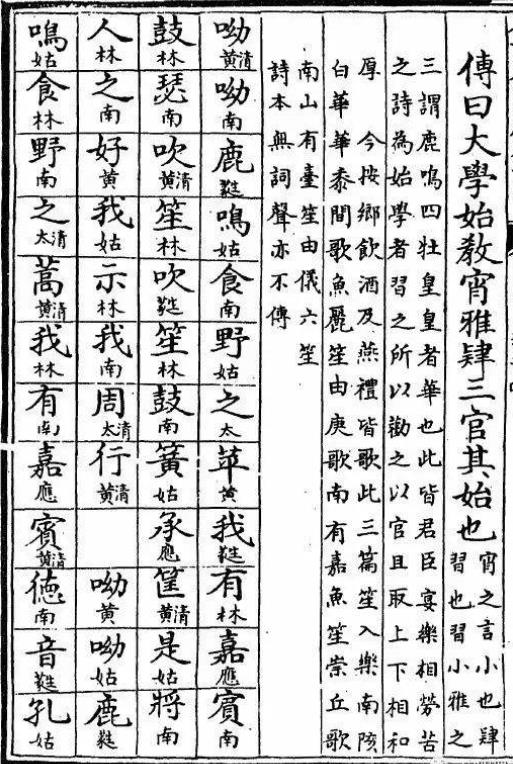 傳曰大學始教宵雅肄三官其始也
宵之言小也肄
習也習小雅之
三謂鹿鳴四牡皇皇者華也此皆君臣宴樂相勞苦
之詩為始學者習之所以勸之以官且取上下相和
厚 今按鄉飲酒及燕禮皆歌此三篇笙入樂南陔
白華華黍間歌魚麗笙由庚歌南有嘉魚笙崇丘歌
南山有臺笙由儀六笙
詩本無詞聲亦不傳
呦清黃 呦南 鹿蕤 鳴姑 食南 野姑 之太 苹黃 我蕤 有林 嘉應 賓南
鼓林 瑟南 吹清黃 笙林 吹蕤 笙林 鼓南 簧姑 承應 筐清黃 是姑 將南
人林 之南 好黃 我姑 示林 我南 周清太 行清黃 呦黃 呦姑 鹿蕤
鳴姑 食林 野南 之清太 蒿清黃 我林 有南 嘉應 賓清黃 德南 音蕤 孔姑